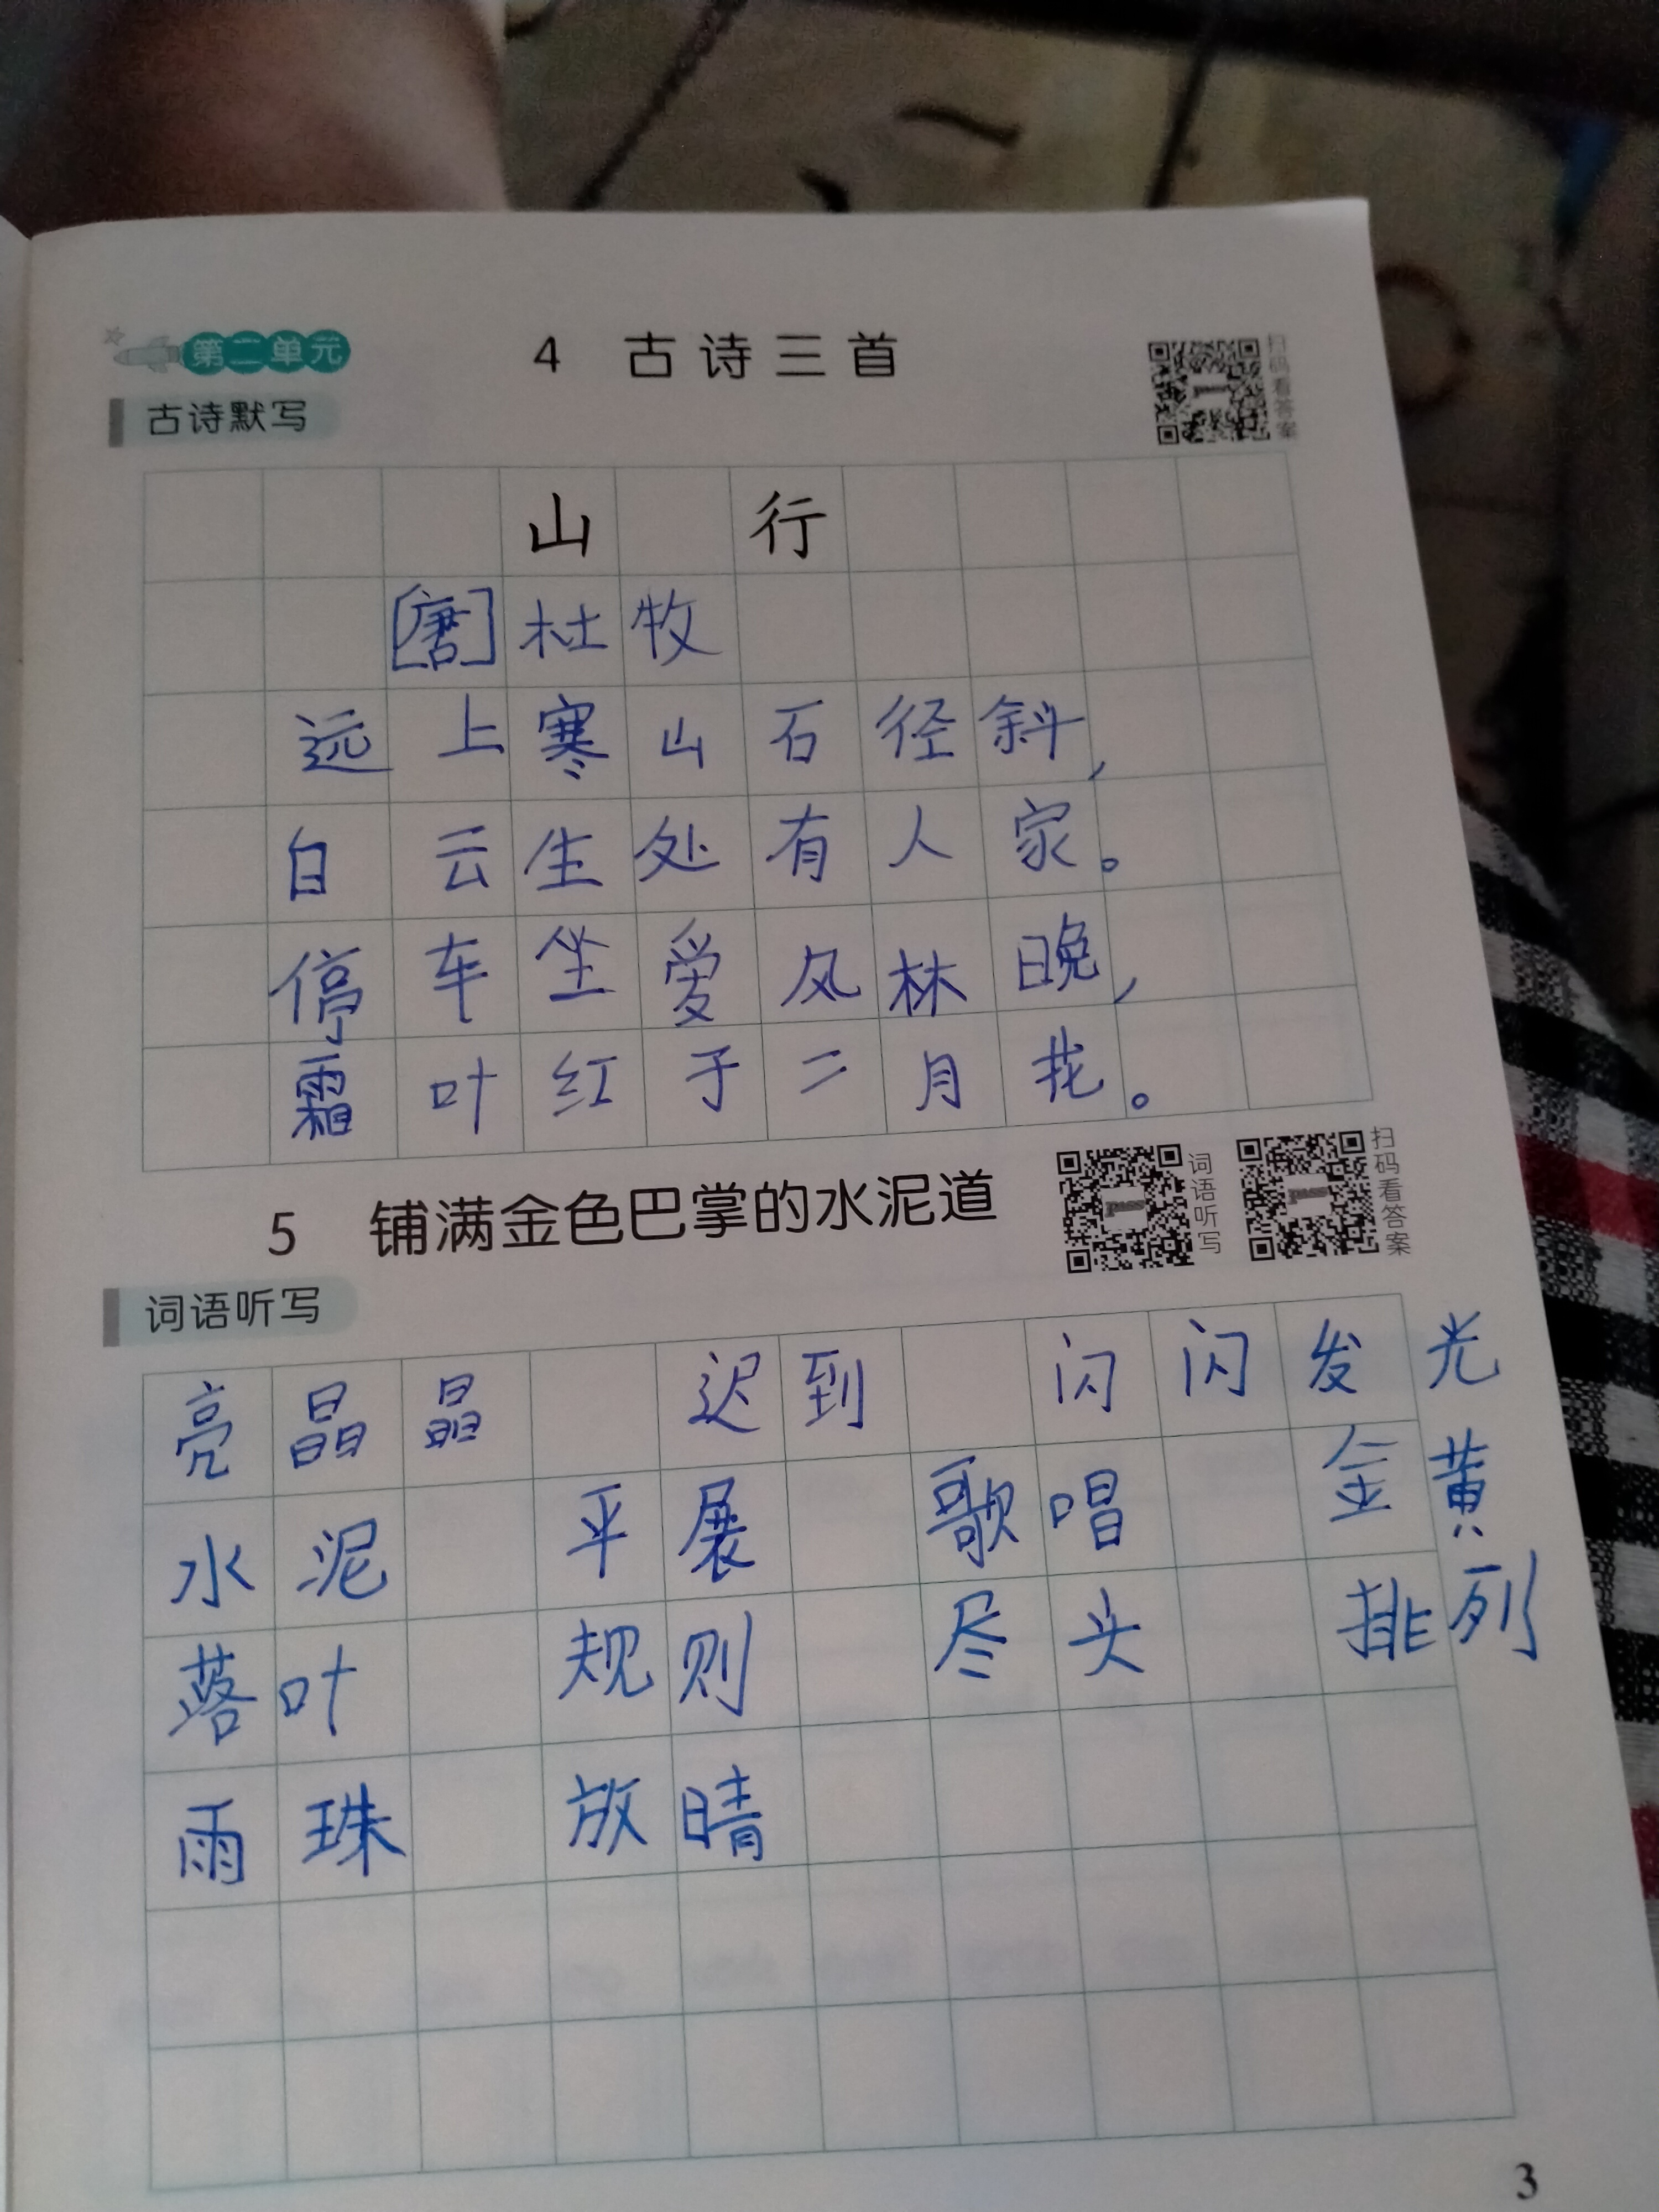 第二单元
4 古诗三首
扫码看答案
古诗默写
山 行
[唐]杜牧
远上寒山石径斜,
白云生处有人家。
停车坐爱风林晚,
霜叶红于二月花。
5 铺满金色巴掌的水泥道
词语听写
扫码看答案
词语听写
亮晶晶 迟到 闪闪发光
水泥 平展 歌唱 金黄
落叶 规则 尽头 排列
雨珠 放晴
3